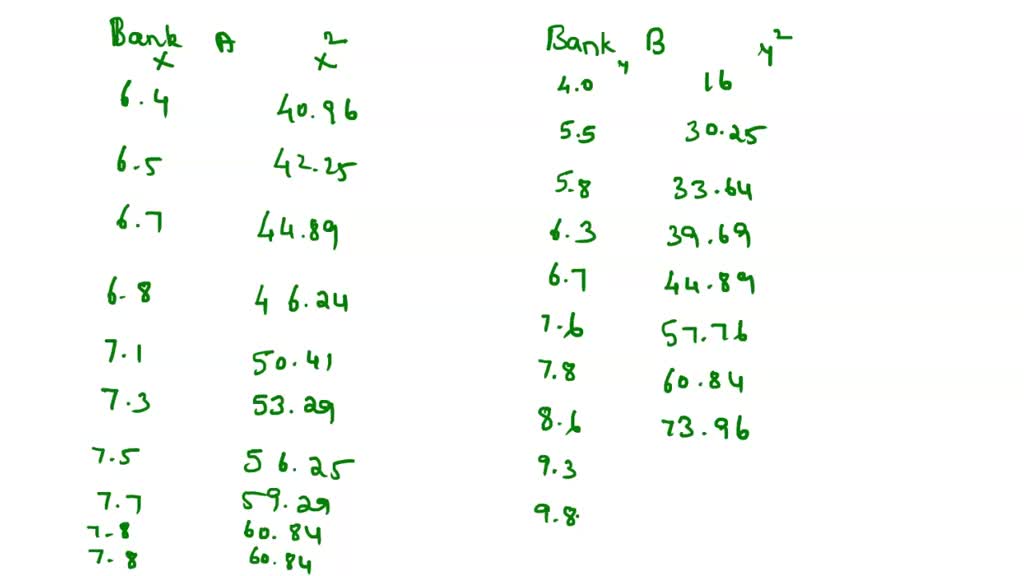 Bank A Bank B
x x² y y²
6.4 40.96 4.0 16
6.5 42.25 5.5 30.25
6.7 44.89 5.8 33.64
6.8 46.24 6.3 39.69
7.1 50.41 6.7 44.89
7.3 53.29 7.6 57.76
7.5 56.25 7.8 60.84
7.7 59.29 8.6 73.96
7.8 60.84 9.3
7.8 60.84 9.8